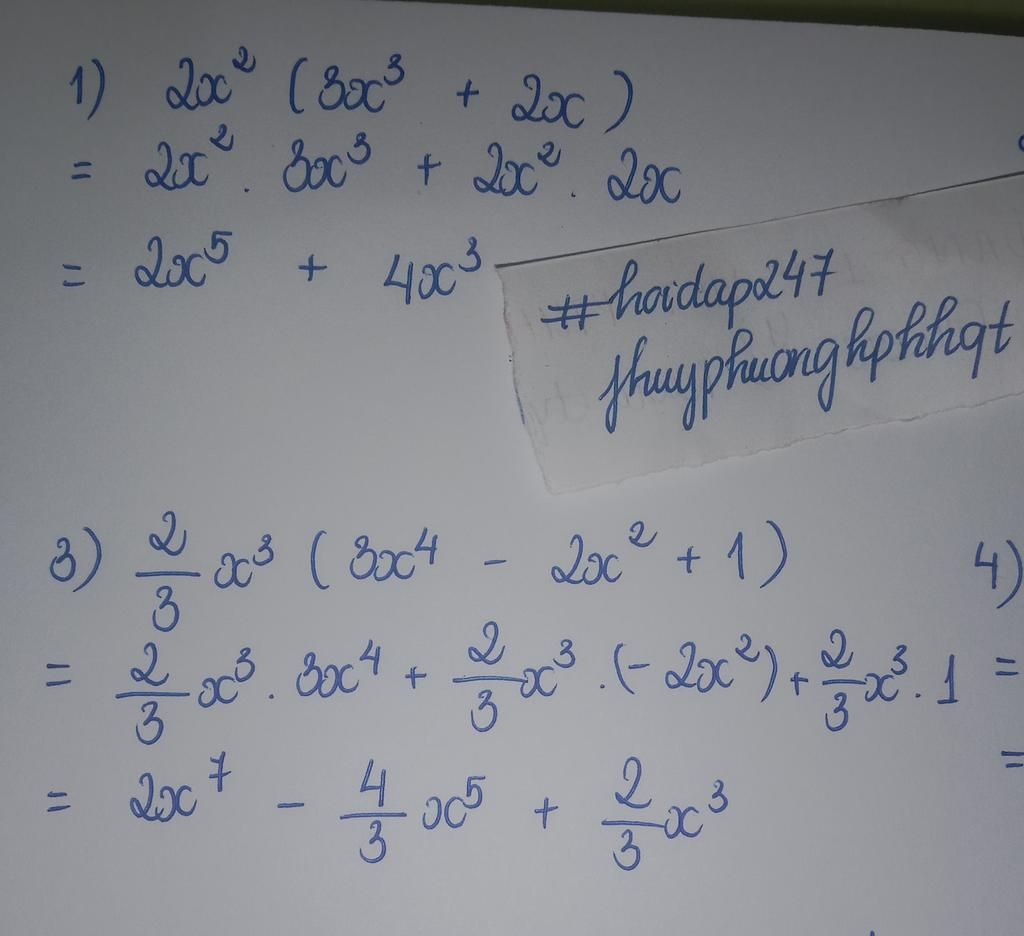 1) 2x² (3x³ + 2x)
= 2x² . 3x³ + 2x² . 2x
= 2x⁵ + 4x³
#hoidap247
thuyphuonghphhqt
3) 2/3 x³ (3x⁴ - 2x² + 1)
= 2/3 x³ . 3x⁴ + 2/3 x³ . (- 2x²) + 2/3 x³ . 1
= 2x⁷ - 4/3 x⁵ + 2/3 x³
4)
=
=